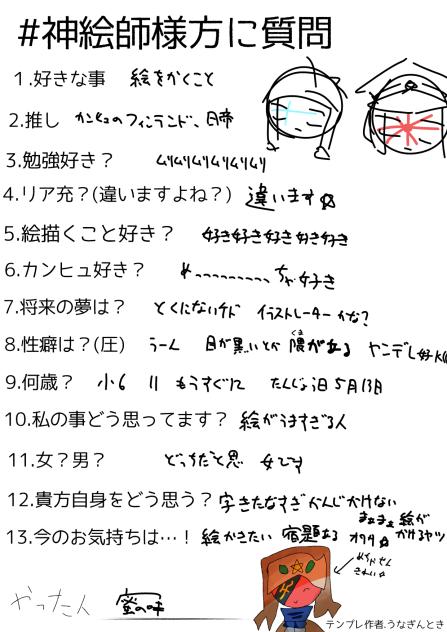 #神絵師様方に質問
1.好きな事 絵をかくこと
2.推し カンヒュのフィンランド、日帝
3.勉強好き? ムリムリムリムリムリムリ
4.リア充?(違いますよね?) 違います☆
5.絵描くこと好き? 好き好き好き好き好き
6.カンヒュ好き? め~~~~~ちゃ好き
7.将来の夢は? とくにないケド イラストレーターかな?
8.性癖は?(圧) うーん 目が黒いとか 隈がある ヤンデレ好
くま
9.何歳? 小6 11 もうすぐ12 たんじょう日5月13日
10.私の事どう思ってます? 絵がうますぎる人
11.女?男? どっちだと思 女です
12.貴方自身をどう思う? 字きたなすぎ かんじかけない
まぁまぁ絵が
かけるヤツ
13.今のお気持ちは…! 絵かきたい 宿題ある オワタ☆
やった人 蜜の味
テンプレ作者.うなぎんとき